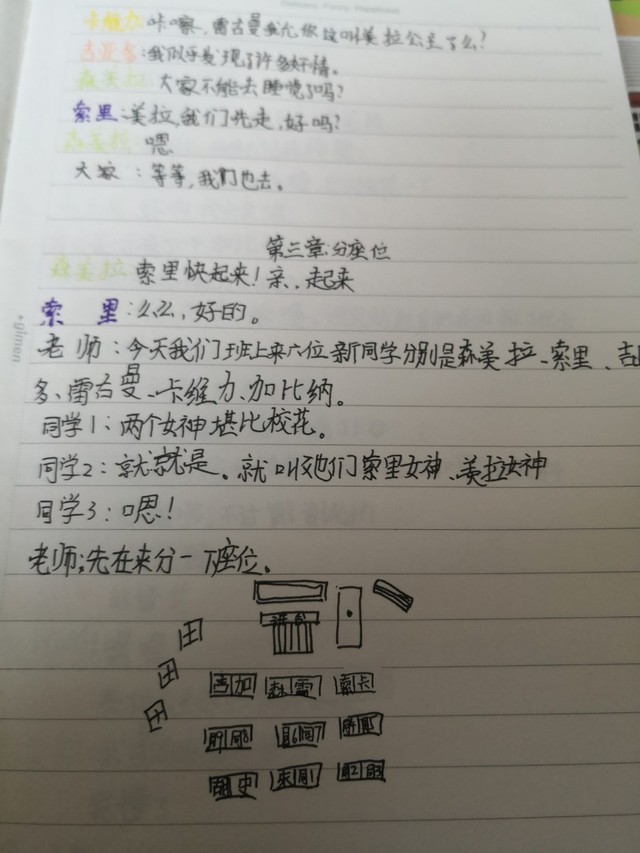 卡维力:咔嚓,雷古曼我允你这叫美拉公主了么?
吉亚多:我似乎发现了许多奸情。
森美拉 大家不能去睡觉了吗?
索里:美拉,我们先走,好吗?
森美拉 嗯
大家:等等,我们也去。
第三章:分座位
森美拉 索里快起来!亲,起来
索里:么么,好的。
老师:今天我们班上来六位新同学分别是森美拉、索里、吉
多、雷古曼、卡维力、加比纳。
同学1:两个女神堪比校花。
同学2:就就是。就叫她们索里女神、美拉女神
同学3:嗯!
老师;先在来分一下座位。
讲台
吉加 森雷 索卡